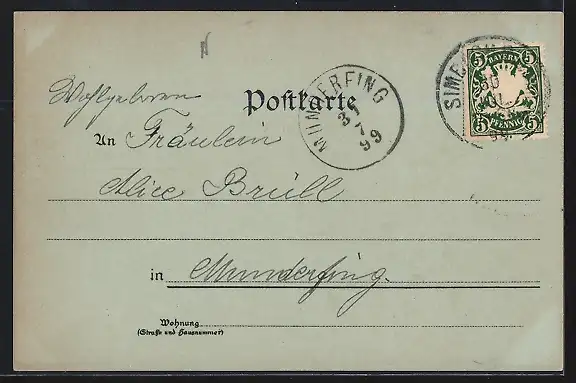 Wohlgeboren
Postkarte
An Fräulein
Alice Brüll
in Munderfing.
Wohnung
(Straße und Hausnummer)
MUNDERFING
31
7
99
5 BAYERN 5
5 PFENNIG 5